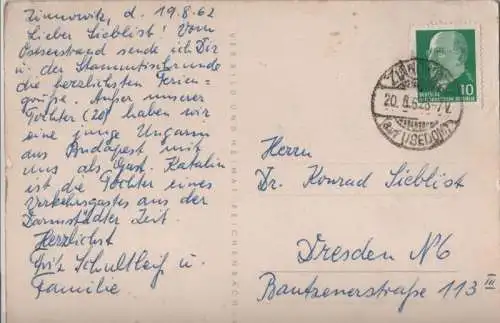 Zinnowitz, d. 19.8.62
Lieber Sieblist! Vom
Ostseestrand sende ich Dir
u. der Stammtischrunde
die herzlichsten Ferien-
grüße. Außer unserer
Tochter (20) haben wir
eine junge Ungarin
aus Budapest mit
uns als Gast. Katalin
ist die Tochter eines
Verkehrsgastes aus der
Darmstädter Zeit.
Herzlichst
Fritz u.
Familie
VERLAG BILD UND HEIMAT REICHENBACH
10
ZINNOWITZ
20.8.62
a/USEDOM
Herrn
Dr. Konrad Sieblist
Dresden N6
Bautzenerstraße 113 III